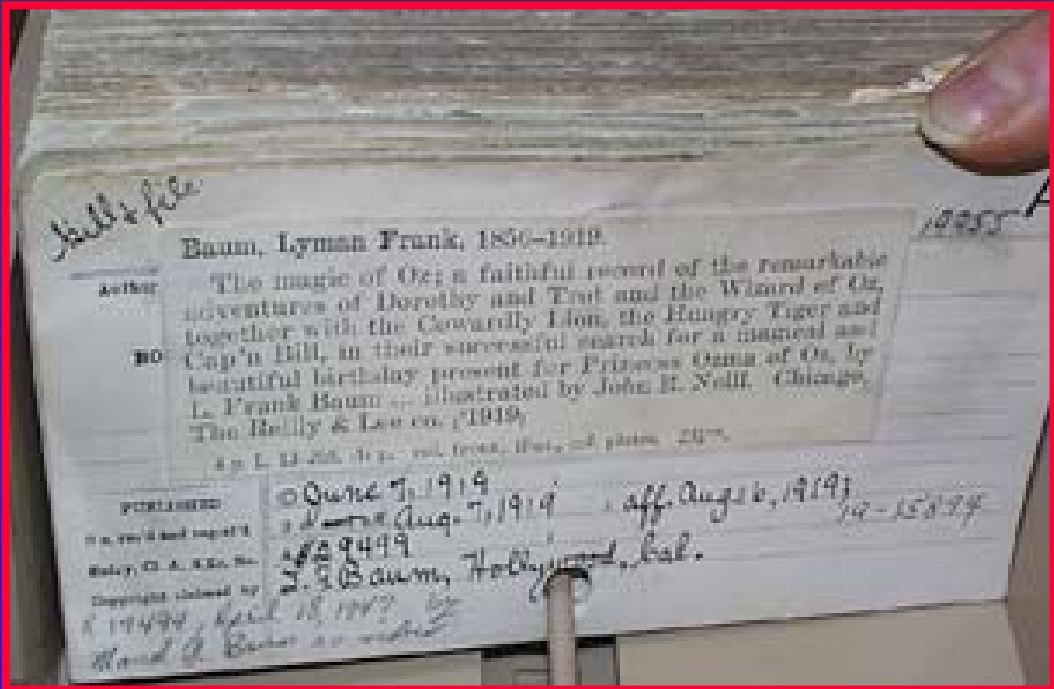 19955
Baum, Lyman Frank, 1856–1919.
Author
The magic of Oz; a faithful record of the remarkable
adventures of Dorothy and Trot and the Wizard of Oz,
together with the Cowardly Lion, the Hungry Tiger and
Cap'n Bill, in their successful search for a magical and
beautiful birthday present for Princess Ozma of Oz, by
L. Frank Baum ... illustrated by John R. Neill. Chicago,
The Reilly & Lee co. [1919]
PUBLISHED
© June 7, 1919
Aug. 7, 1919 aff. Aug 16, 1919;
19-15894
29499
Copyright claimed by L. F. Baum, Hollywood, Cal.
April 18, 1947 by
Maud G. Baum as widow